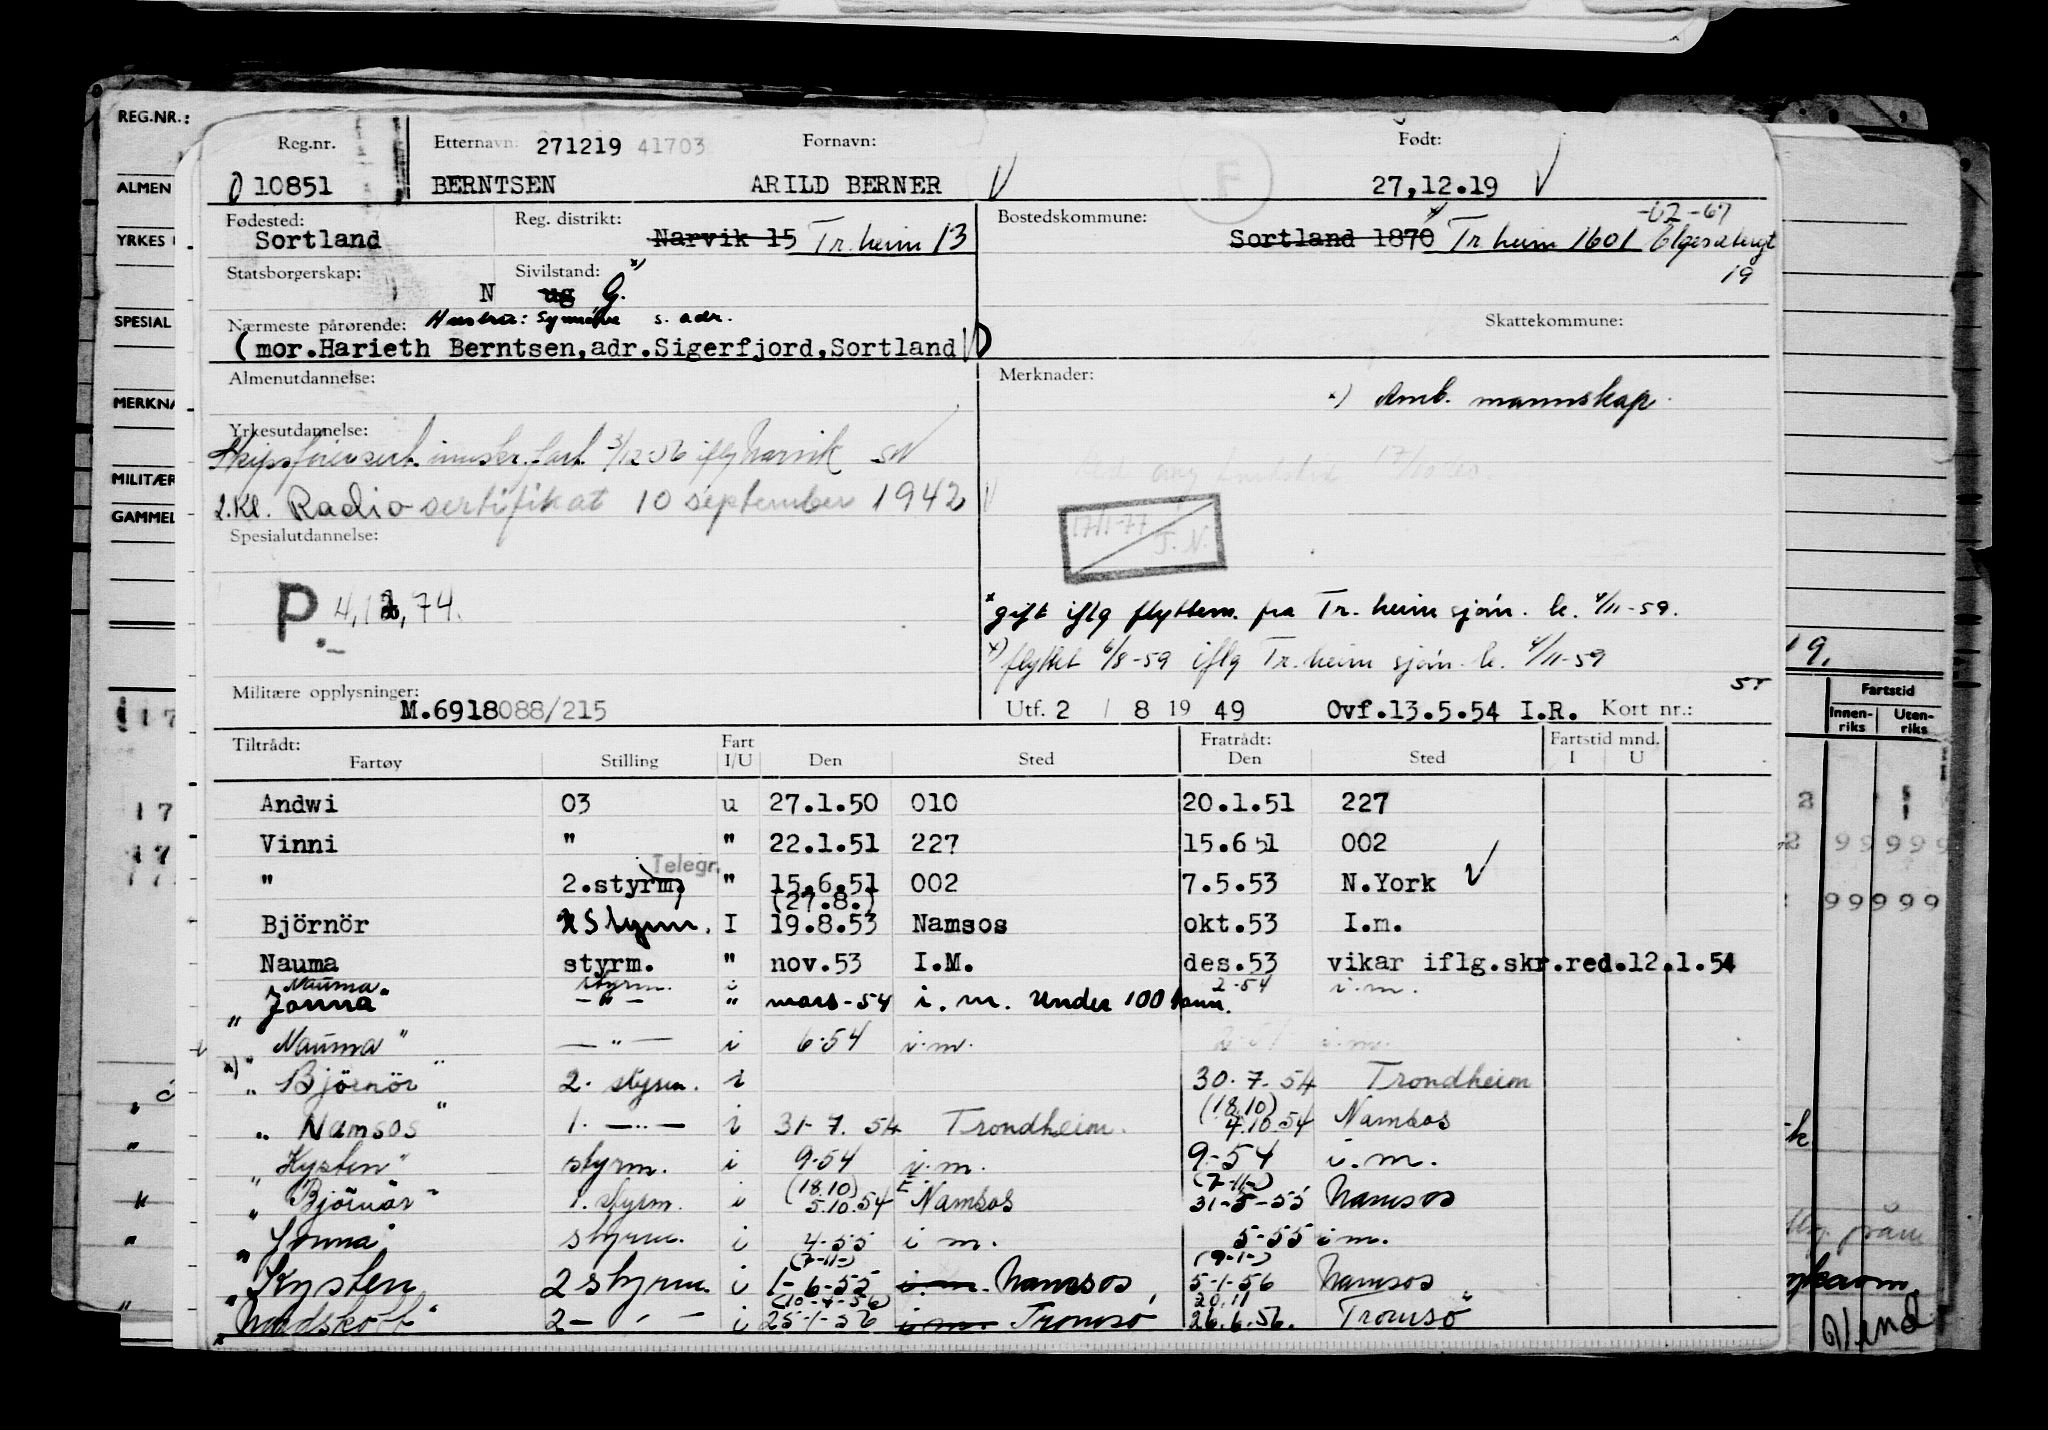 REG.NR.:
ALMEN
YRKES
SPESIAL
MERKNA
MILITÆR
GAMMEL
Reg.nr. Etternavn: 271219 41703 Fornavn: Født:
10851 BERNTSEN ARILD BERNER V F 27,12.19 V
Fødested: Reg. distrikt: Bostedskommune: -02-67
Sortland Narvik 15 Tr.heim 13 Sortland 1870 Tr heim 1601
19
Statsborgerskap: Sivilstand: x)
N ug G.
Nærmeste pårørende: Hustru: s. adr. Skattekommune:
(mor.Harieth Berntsen,adr.Sigerfjord,Sortland)
Almenutdannelse: Merknader:
x) Amb. mannskap.
Yrkesutdannelse:
3/12-56 iflg Narvik
2.Kl. Radio sertifikat 10 september 1942 V
Spesialutdannelse:
17/1-77 T.N.
P. 4,12,74.
x gift iflg flyttem. fra Tr. heim sjøm. k. 4/11-59.
x) flyttet 6/8-59 iflg Tr. heim sjøm. k. 4/11-59
ST
Militære opplysninger:
M.6918088/215 Utf. 2 / 8 19 49 Ovf.13.5.54 I.R. Kort nr.:
Tiltrådt: Fart Fratrådt: Fartstid mnd.
Fartøy Stilling I/U Den Sted Den Sted I U
Andwi 03 u 27.1.50 010 20.1.51 227
Vinni " " 22.1.51 227 15.6 51 002
Telegr.
" 2.styrm. " 15.6.51 002 7.5.53 N.York V
(27.8.)
Björnör 2 Styrm. I 19.8.53 Namsos okt.53 I.m.
Nauma styrm. " nov.53 I.M. des.53 vikar iflg.skr.red.12.1.54
Nauma styrm. i 2-54 i.m.
" Jonna" - " - " mars-54 i. m. Under 100 tonn.
" Nauma " — " — i 6-54 i.m.
x) " Björnör " 2. styrm. i 30. 7. 54 Trondheim
(18.10)
" Namsos " 1. — " — i 31-7. 54 Trondheim. 4.10.54 Namsos
" Kysten " styrm. i 9-54 i.m. 9-54 i.m.
(18.10) (7-11-)
" Björnör " 1. styrm. i 5.10.54 Namsos 31-5-55 Namsos
" Jonna " styrm. i 4-55 i m. 5-55 i m.
(7-11-) (9-1-)
" Kysten 2 styrm. i 1-6-55 i.m. Namsos, 5-1-56 Namsos
(10-4-56) 20.11
" 2 - " - i 25-1-56 i m. Tromsö 26.6.56. Tromsö "
19.
Fartstid
Innen-riks Uten-riks
Vend